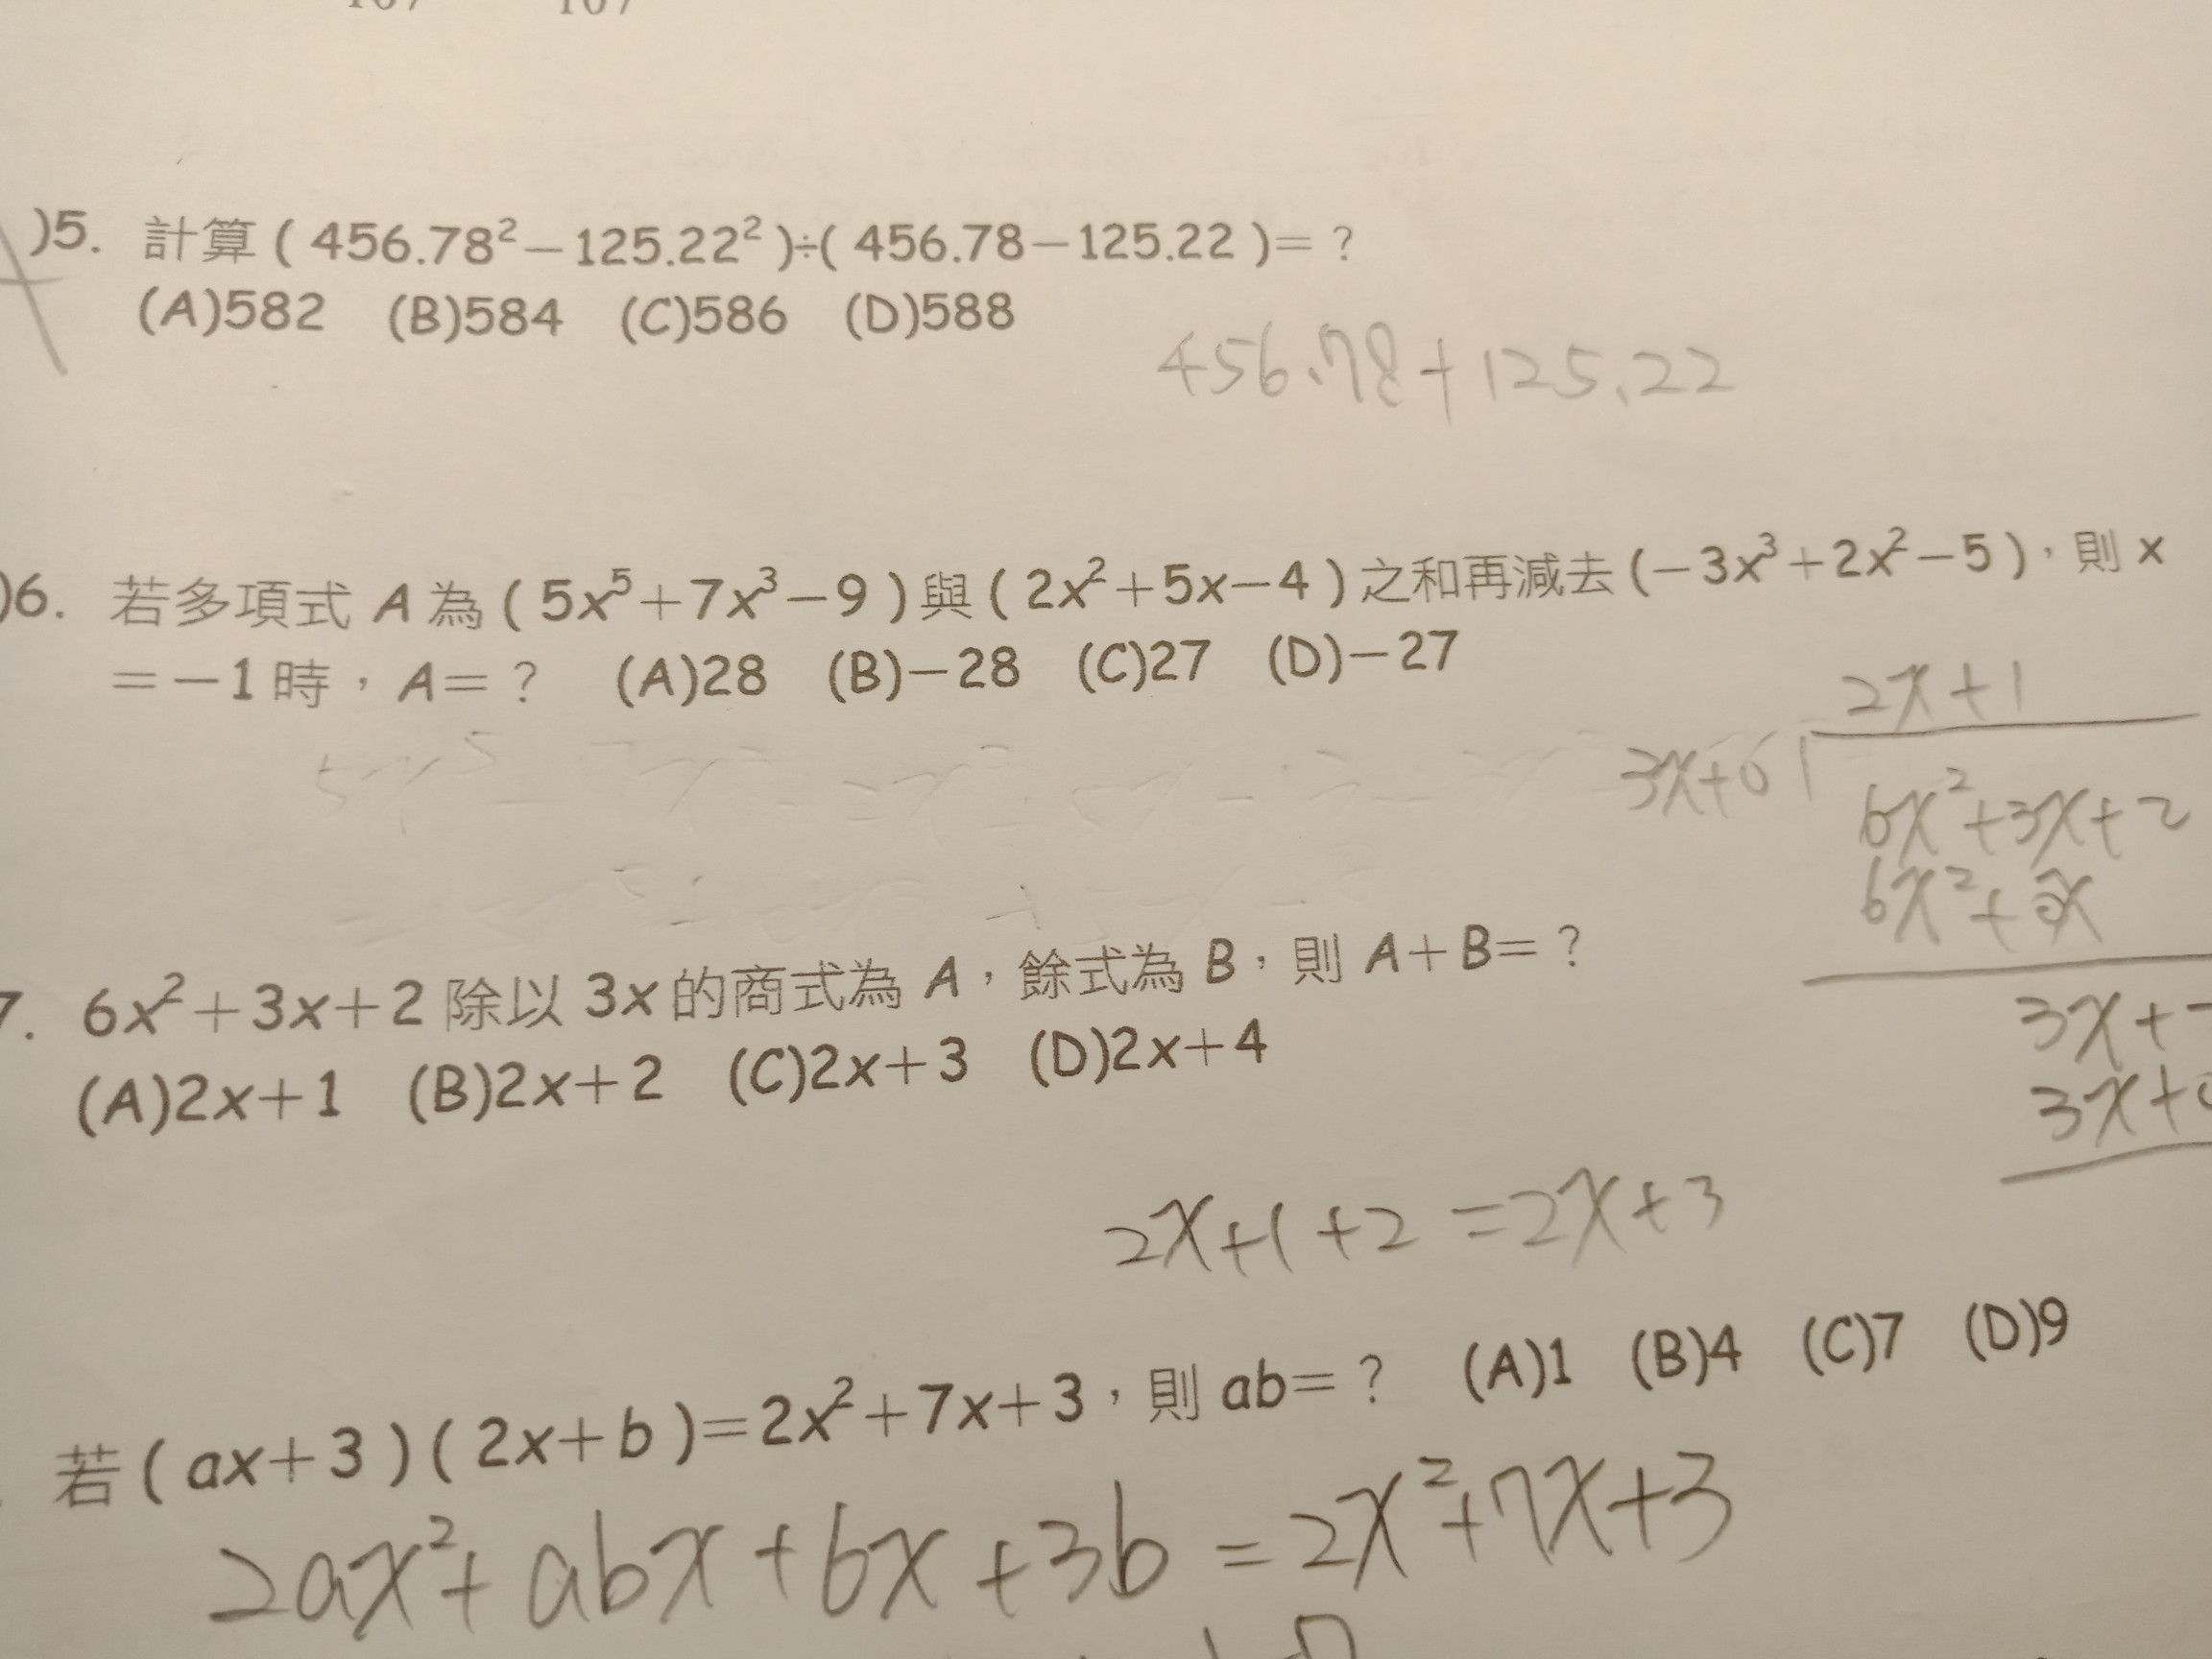 )5. 計算 ( 456.78²－125.22² )÷( 456.78－125.22 )＝？
(A)582 (B)584 (C)586 (D)588
456.78+125.22
)6. 若多項式 A 為 ( 5x⁵＋7x³－9 ) 與 ( 2x²＋5x－4 ) 之和再減去 (－3x³＋2x²－5 )，則 x
＝－1 時，A＝？ (A)28 (B)－28 (C)27 (D)－27
2x+1
3x+0
6x²+3x+2
6x²+
3x+
3x+0
7. 6x²＋3x＋2 除以 3x 的商式為 A，餘式為 B，則 A＋B＝？
(A)2x＋1 (B)2x＋2 (C)2x＋3 (D)2x＋4
2x+1+2=2x+3
若 ( ax＋3 ) ( 2x＋b )＝2x²＋7x＋3，則 ab＝？ (A)1 (B)4 (C)7 (D)9
2ax²+abx+6x+3b=2x²+7x+3